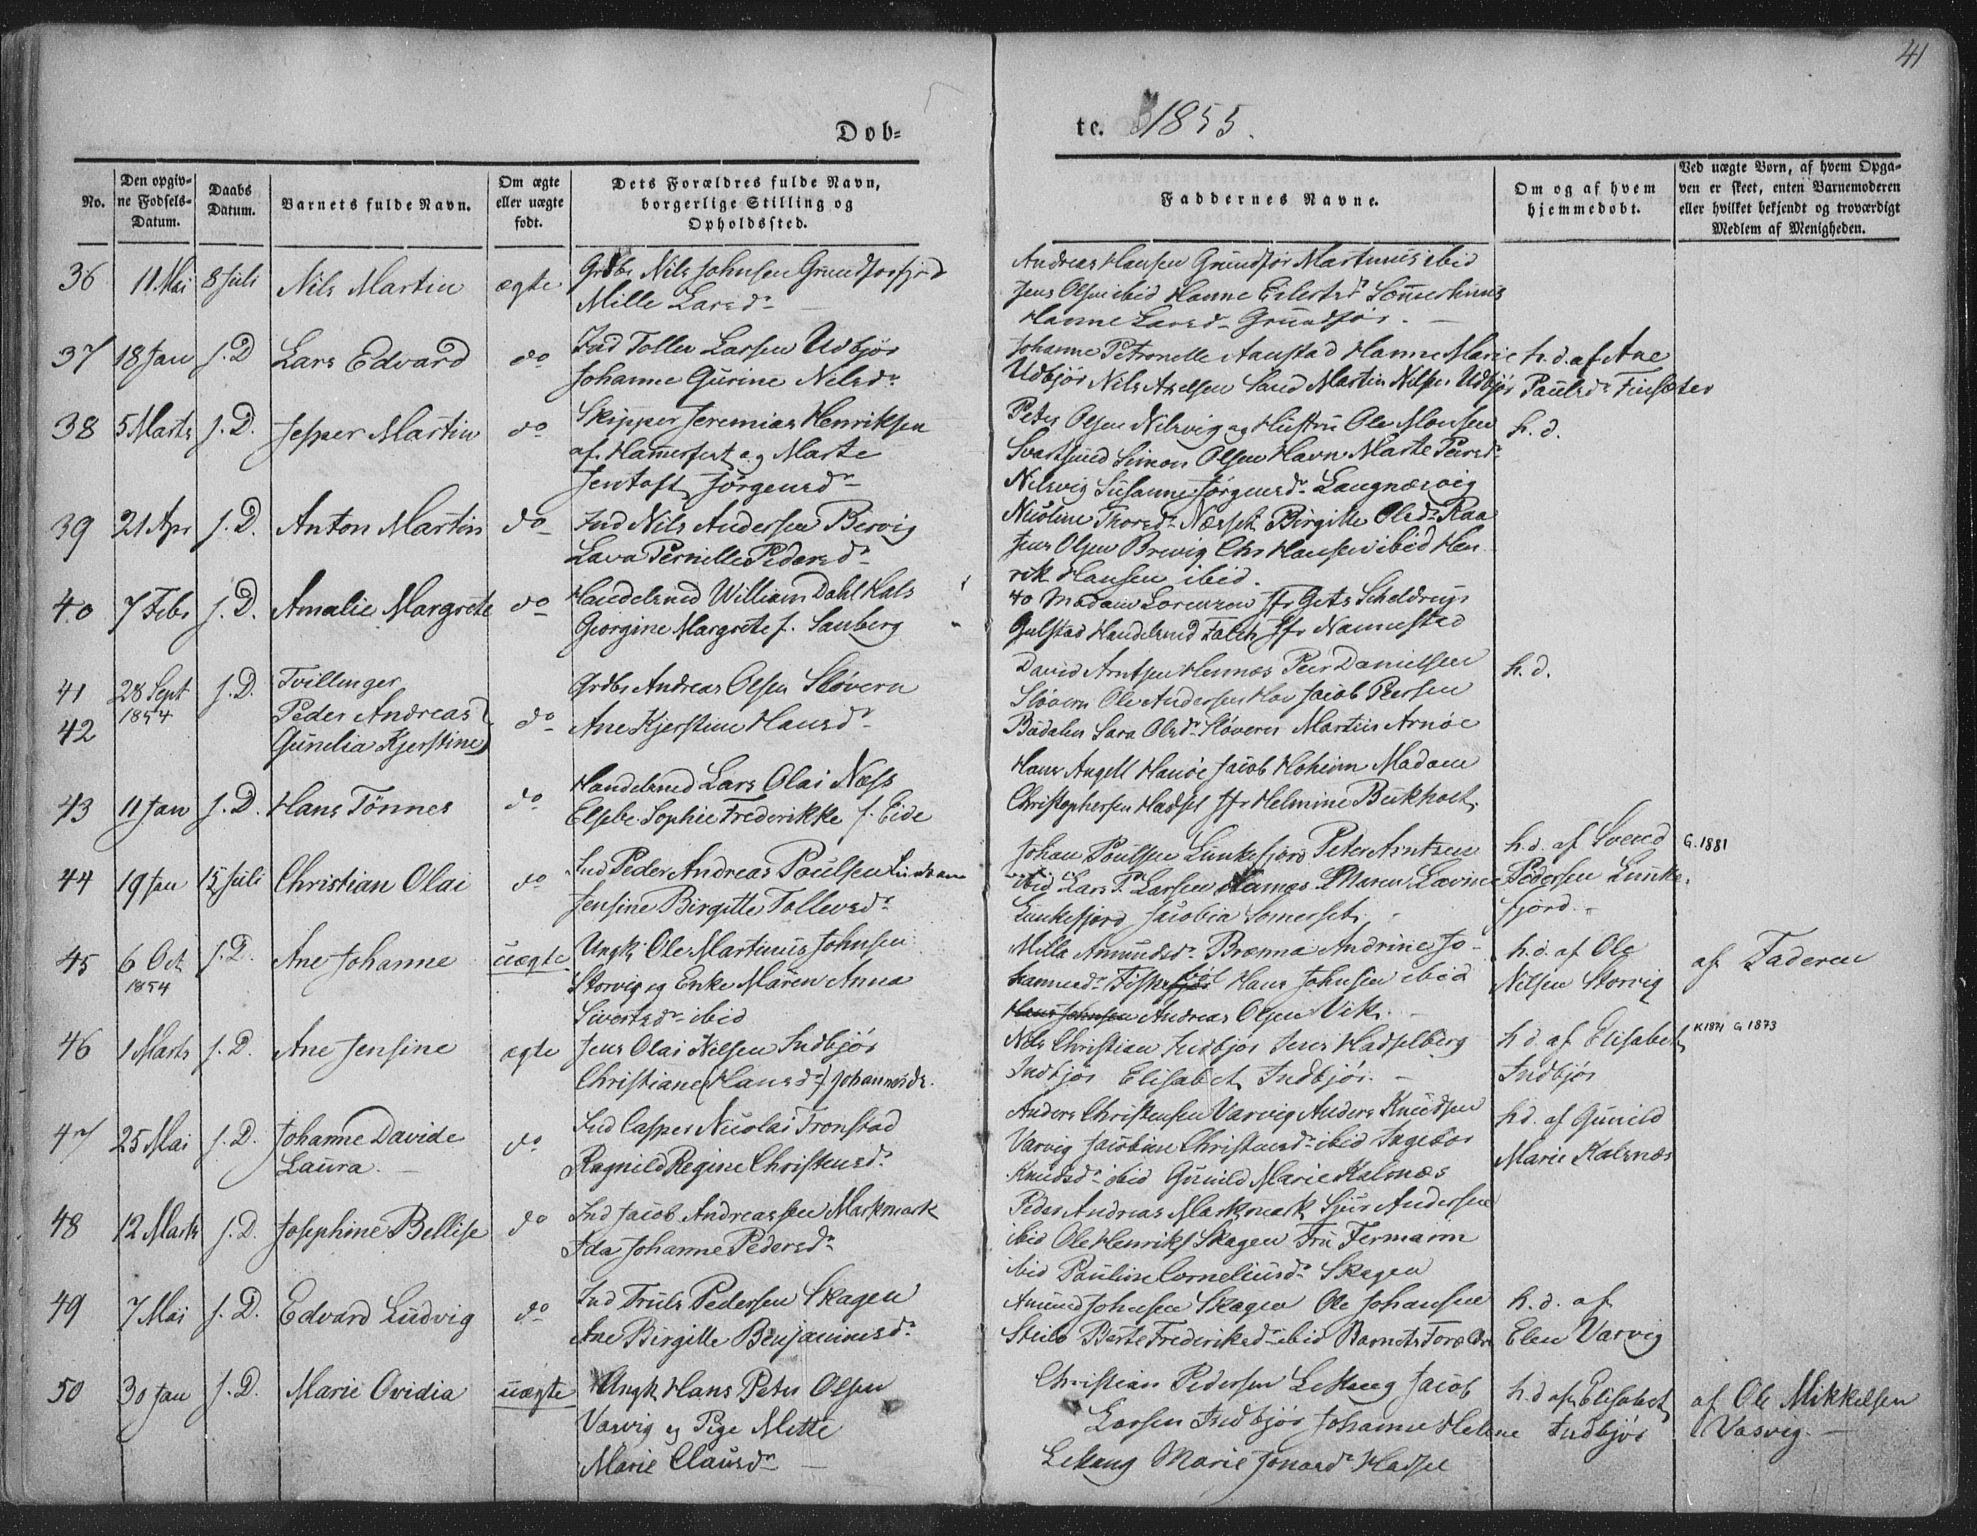 41
Døb= te. 1855.
No.
Den opgiv=
ne Fødsels=
Datum.
Daabs
Datum.
Barnets fulde Navn.
Om ægte
eller uægte
født.
Dets Forældres fulde Navn,
borgerlige Stilling og
Opholdssted.
Faddernes Navne.
Om og af hvem
hjemmedøbt.
Ved uægte Børn, af hvem Opga=
ven er skeet, enten Barnemoderen
eller hvilket bekjendt og troværdigt
Medlem af Menigheden.
36 11 Mai 8 Juli Nils Martin ægte
Grdbr Nils Johnsen Grundforfjord
Mille Larsdr
Andreas Hansen Grundfør Martinus ibid
Jens Olsen ibid Hanne Eilertsdr
Hanne Larsdr Grundfør.
37 18 Jan s. D Lars Edvard do
Ind Toller Larsen Udbjør
Johanne Gurine Nelsdr
Johanne Petronelle Aanstad Hanne Marie
Udbjør Nils Axelsen Sand Martin Nilsen Udbjør
h. d. af Ane
Paulsdr Finsæter
38 5 Marts s. D. Jesper Martin do
Skipper Jeremias Henriksen
af Hamerfest og Marte
Jentoft Jørgensdr
Peter Olsen Nilsvig og Hustru Ole Monsen
Svartsund Simon Olsen Havn Marte Peersdr
Nilsvig Susanne Jørgensdr Langnæsvig
h. d.
39 21 Apr s. D. Anton Martin do
Ind Nils Andersen Brevig
Lava Pernille Pedersdr
Nicoline Thorsdr Birgitte Olsdr Raa
Jens Olsen Brevig Chr Hansen ibid Hen
rik Hansen ibid.
40 7 Febr s. D. Amalie Margrete do
Handelsmd William Dahl Hals
Georgine Margrete f. Sanberg
40 Madam Lorenzen Jfr Gets Scheldrup
Gulstad Handelsmd Falch Jfr Nannestad
41 28 Sept s. D. Tvillinger
42 1854 Peder Andreas
Gunelia Kjerstine do
Grdbr Andreas Olsen Sløveren
Ane Kjerstine Hansdr
David Arntsen Hennæs Peer Danielsen
Sløveren Ole Andersen Hov Jacob Peersen
Bådalen Sara Olsdr Sløveren Martin Arnøe
h. d.
43 11 Jan s. D. Hans Tønnes do
Handelsmd Lars Olai Næss
Elsebe Sophie Frederikke f. Eide
Hans Angell Hanøe Jacob Hoheim Madam
Christophersen Hadsel Jfr Helmine Bukholt.
44 19 Jan 15 Juli Christian Olai do
Ind Peder Andreas Poulsen
Jensine Birgitte Tollevsdr
Johan Poulsen Lunkefjord Peter Arntzen
ibid Lars P. Larsen Hennæs Maren Lovine
Lunkefjord Jacobia Somerset.
h. d. af Svend
Pedersen Lunke=
fjord.
G. 1881
45 6 Oct s. D. Ane Johanne uægte
1854
Ungk. Ole Martinus Johnsen
Storvig og Enke Maren Anna
Sivertsdr ibid
Milla Amundsdr Brænna Andrine Jo-
hannesdr Fiskebøl Hans Johnsen ibid
Hans Johnsen Andreas Olsen Vik.
h. d. af Ole
Nilsen Storvig
af Faderen
46 1 Marts s. D. Ane Jensine ægte
Jens Olai Nilsen Indbjør
Christiane (Hansdr) Johannesdr.
Nils Christian Indbjør Jens Hadselberg
Indbjør Elisabet Indbjør.
h. d. af Elisabet
Indbjør
K 1871 G 1873
47 25 Mai s. D. Johanne Davide
Laura. do
Ind Casper Nicolai Tronstad
Ragnild Regine Christensdr
Anders Christensen Varvig Anders Knudsen
Varvig Jacobine Christensdr ibid Ingebor
Knudsdr ibid Gunild Marie Kalsnæs
h. d. af Gunild
Marie Kalsnæs
48 12 Marts s. D. Josephine Bellise do
Ind Jacob Andreassen Markmark
Ida Johanne Pedersdr
Peder Andreas Markmark Sjur Andersen
ibid Ole Henriks Skagen Fru Fermann
ibid Pauline Corneliusdr Skagen
49 7 Mai s. D. Edvard Ludvig do
Ind Truls Pedersen Skagen
Ane Birgitte Benjaminsdr
Amund Johnsen Skagen Ole Johansen
Steilo Berte Frederiksdr ibid Barnets Forældre
h. d. af
Elen Varvig
50 30 Jan s. D. Marie Ovidia uægte
Ungk Hans Peter Olsen
Varvig og Pige Mette
Marie Clausdr
Christian Pedersen Lekang Jacob
Larsen Indbjør Johanne Helene
Lekang Marie Jonasdr Hadsel
h. d. af Elisabet
Indbjør
af Ole Mikkelsen
Varvig.